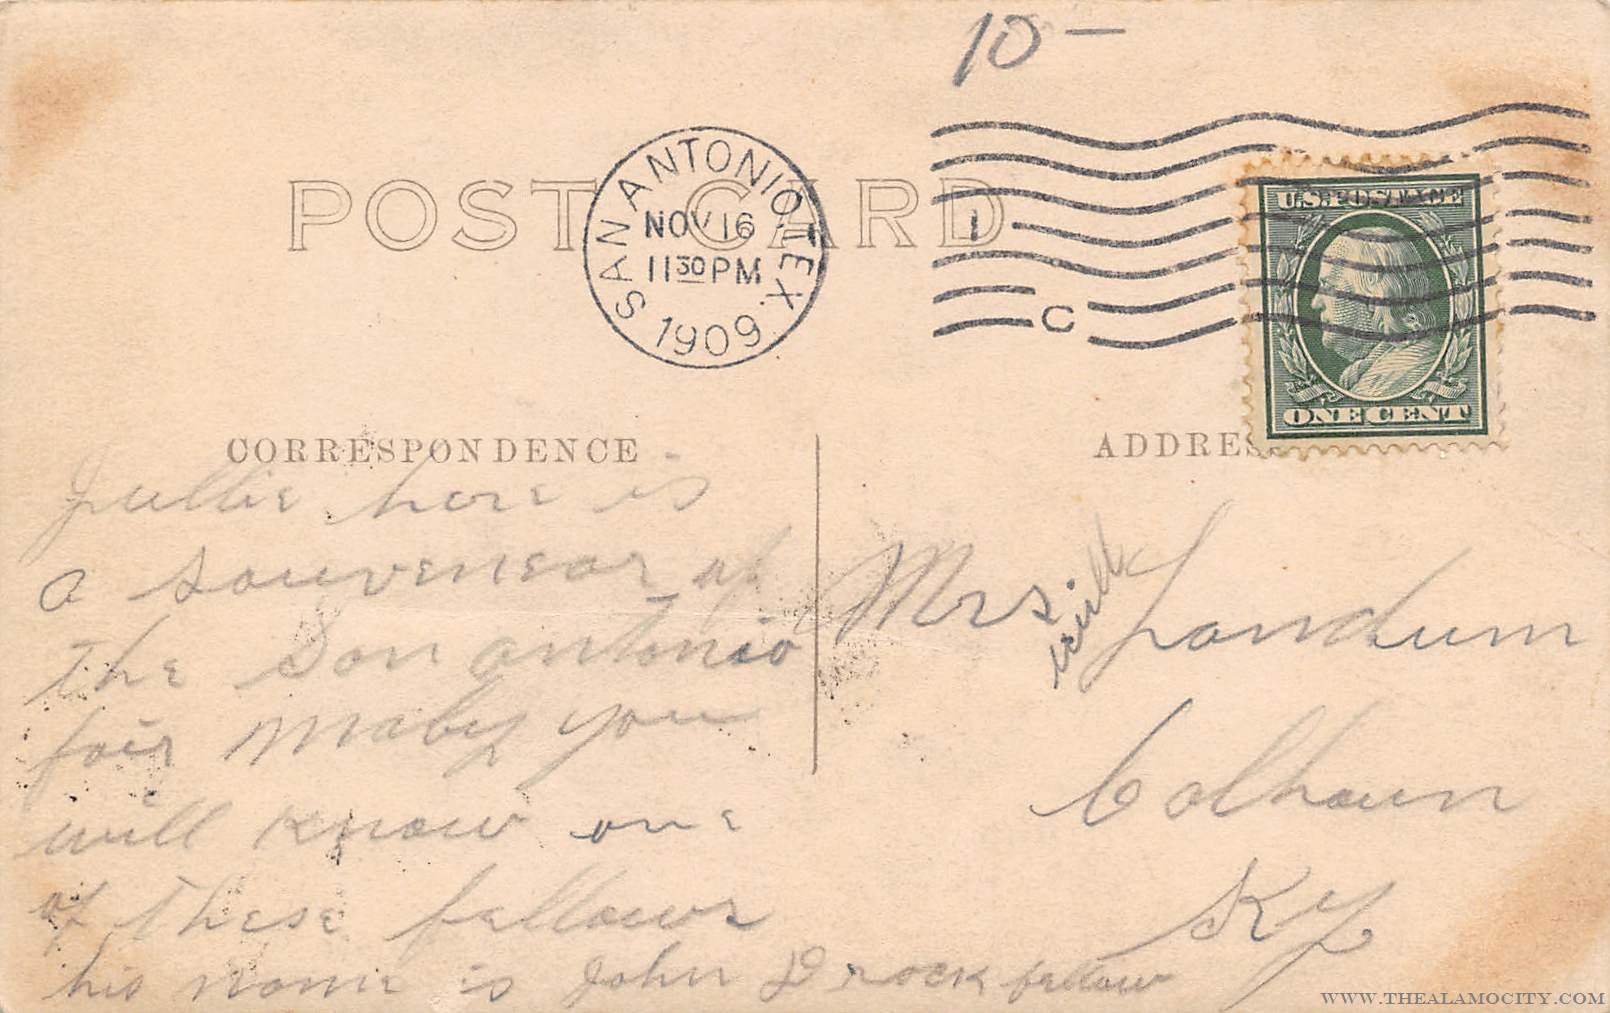 10 —
POST CARD
SAN ANTONIO, TEX.
NOV 16
11 30 PM
1909
1
C
U.S. POSTAGE
ONE CENT
CORRESPONDENCE
ADDRES
Jullie here is
a souvenear of
the San antonio
fair maby you
will know one
of these fellows
his name is John D rockfellow
Mrs will Landum
Calhoun
Ky
WWW.THEALAMOCITY.COM